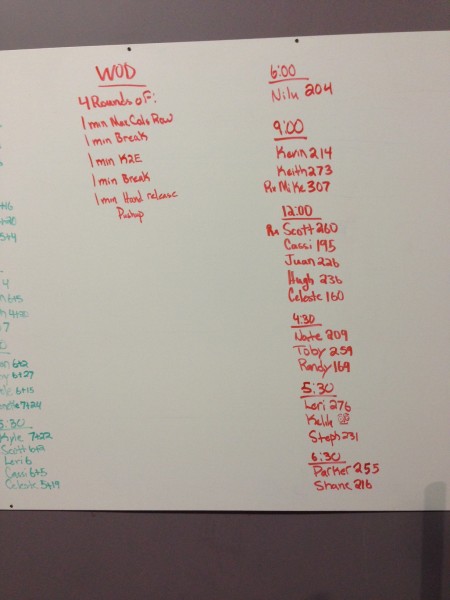 WOD
4 Rounds of:
1 min Max Cals Row
1 min Break
1 min K2E
1 min Break
1 min Hand release
Pushup
6:00
Nilu 204
9:00
Kevin 214
Keith 273
Rx Mike 307
12:00
Rx Scott 260
Cassi 195
Juan 226
Hugh 236
Celeste 160
4:30
Nate 209
Toby 259
Randy 169
5:30
Lori 276
Kelly
Steph 231
6:30
Parker 255
Shane 216
+16
5+4
4
6+5
7
6+2
6+27
6+15
7+24
5:30
Kyle 7+22
Scott
Lori 6
Cassi 6+5
Celeste 5+19